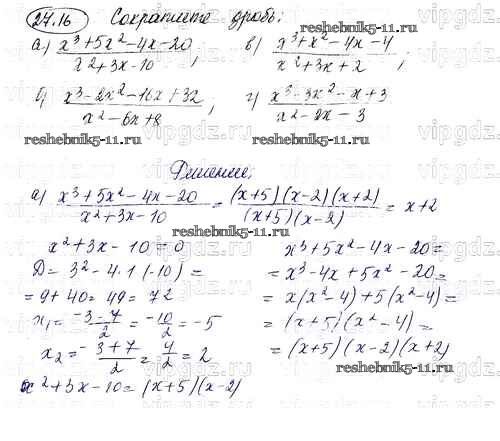 27.16 Сократите дробь:
а) (x³+5x²-4x-20)/(x²+3x-10), в) (x³+x²-4x-4)/(x²+3x+2),
б) (x³-2x²-16x+32)/(x²-6x+8) г) (x³-3x²-x+3)/(x²-2x-3)
reshebnik5-11.ru
reshebnik5-11.ru
Решение:
а) (x³+5x²-4x-20)/(x²+3x-10) = ((x+5)(x-2)(x+2))/((x+5)(x-2)) = x+2
reshebnik5-11.ru
x²+3x-10=0
D= 3²-4·1·(-10) =
= 9+40= 49= 7²
x₁= (-3-7)/2 = -10/2 = -5
x₂= (-3+7)/2 = 4/2 = 2
x²+3x-10= (x+5)(x-2)
x³+5x²-4x-20=
= x³-4x+5x²-20=
= x(x²-4)+5(x²-4)=
= (x+5)(x²-4)=
= (x+5)(x-2)(x+2)
reshebnik5-11.ru
vipgdz.ru